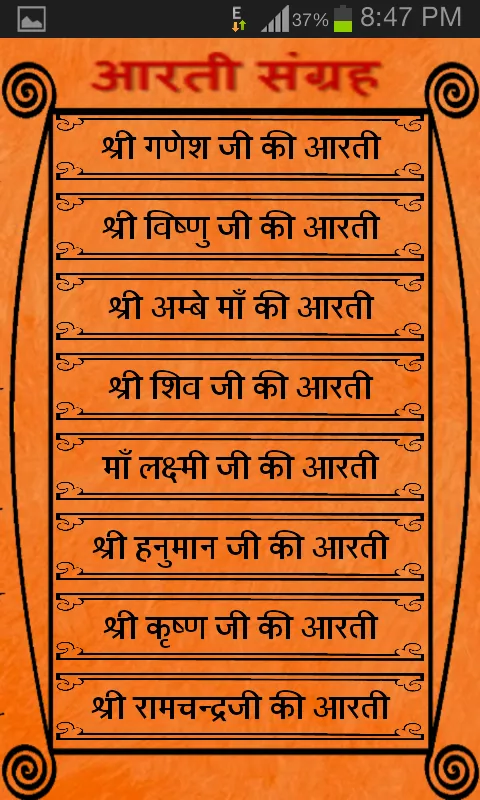 E 37% 8:47 PM
आरती संग्रह
श्री गणेश जी की आरती
श्री विष्णु जी की आरती
श्री अम्बे माँ की आरती
श्री शिव जी की आरती
माँ लक्ष्मी जी की आरती
श्री हनुमान जी की आरती
श्री कृष्ण जी की आरती
श्री रामचन्द्रजी की आरती